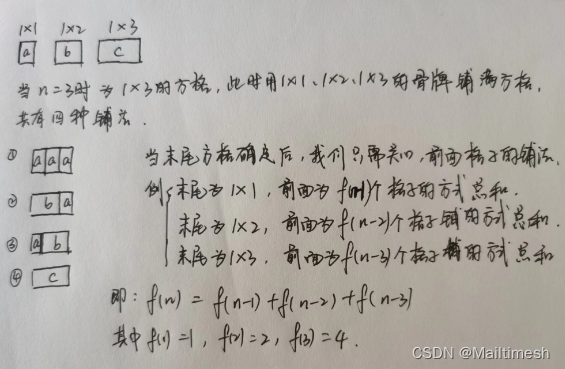 1×1 1×2 1×3
a b c
当n=3时为1×3的方格,此时用1×1、1×2、1×3的骨牌铺满方格,
共有四种铺法.
① a a a
② b a
③ a b
④ c
当末尾方格确定后,我们只需关心,前面格子的铺法.
例 末尾为1×1,前面为f(n-1)个格子的方式总和.
末尾为1×2,前面为f(n-2)个格子铺的方式总和.
末尾为1×3,前面为f(n-3)个格子铺的方式总和
即:f(n)=f(n-1)+f(n-2)+f(n-3)
其中f(1)=1,f(2)=2,f(3)=4.
CSDN @Mailtimesh